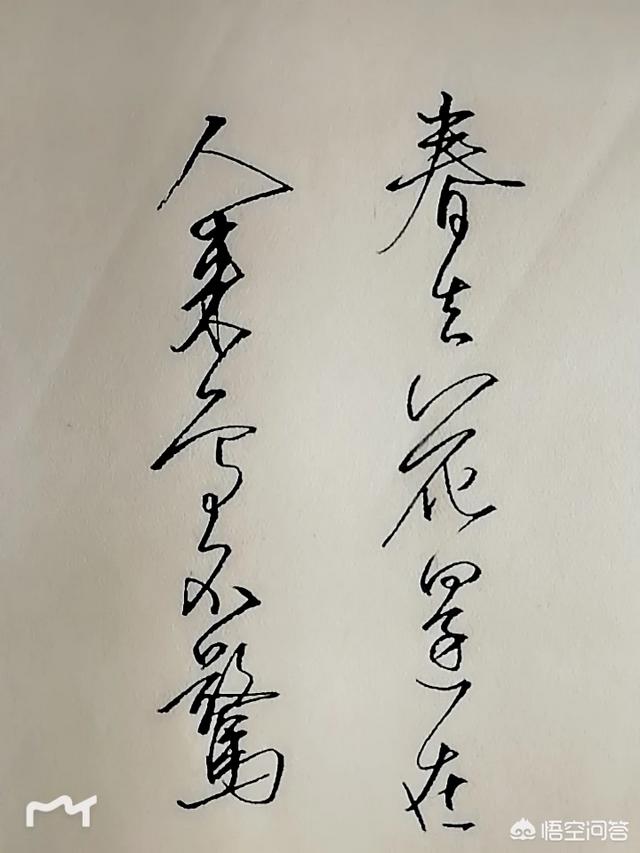 春去花還在
人來鳥不驚
悟空问答